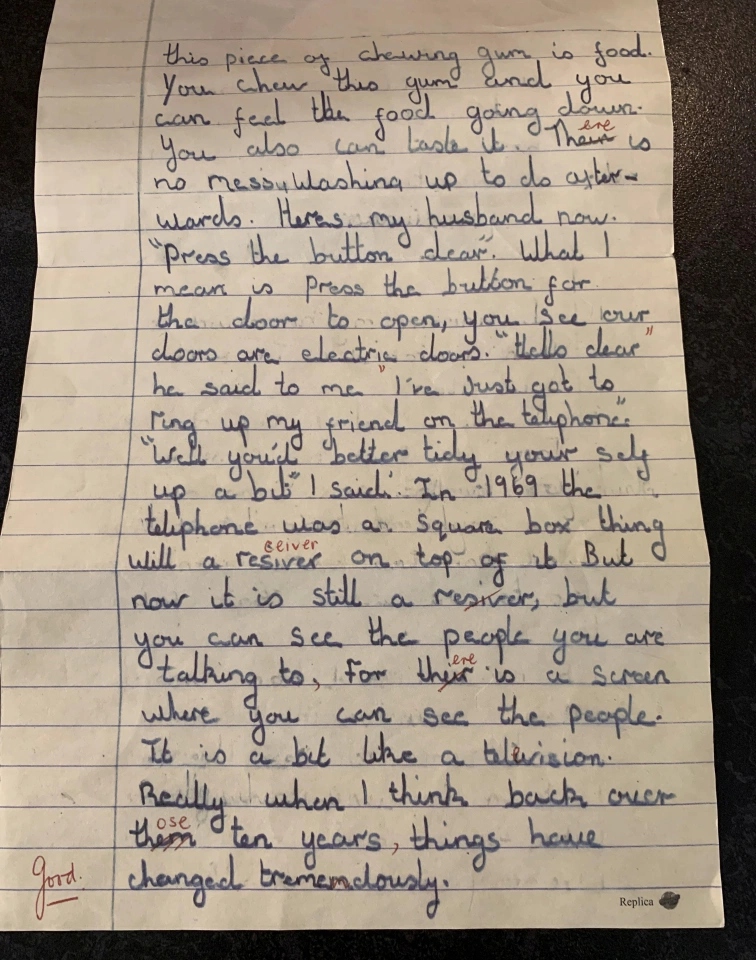 this piece of chewing gum is food.
You chew this gum and you
can feel the food going down.
You also can taste it. Their ere is
no messy washing up to do after-
wards. Heres my husband now.
"Press the button dear". What I
mean is press the button for
the door to open, you see our
doors are electric doors. "Hello dear"
he said to me "I've just got to
ring up my friend on the telephone".
"Well you'd better tidy your self
up a bit" I said. In 1969 the
telephone was a square box thing
will a resiver seiver on top of it But
now it is still a resiver, but
you can see the people you are
talking to, for their ere is a screen
where you can see the people.
It is a bit like a television.
Really when I think back over
them ose ten years, things have
good. changed trememdously.
Replica